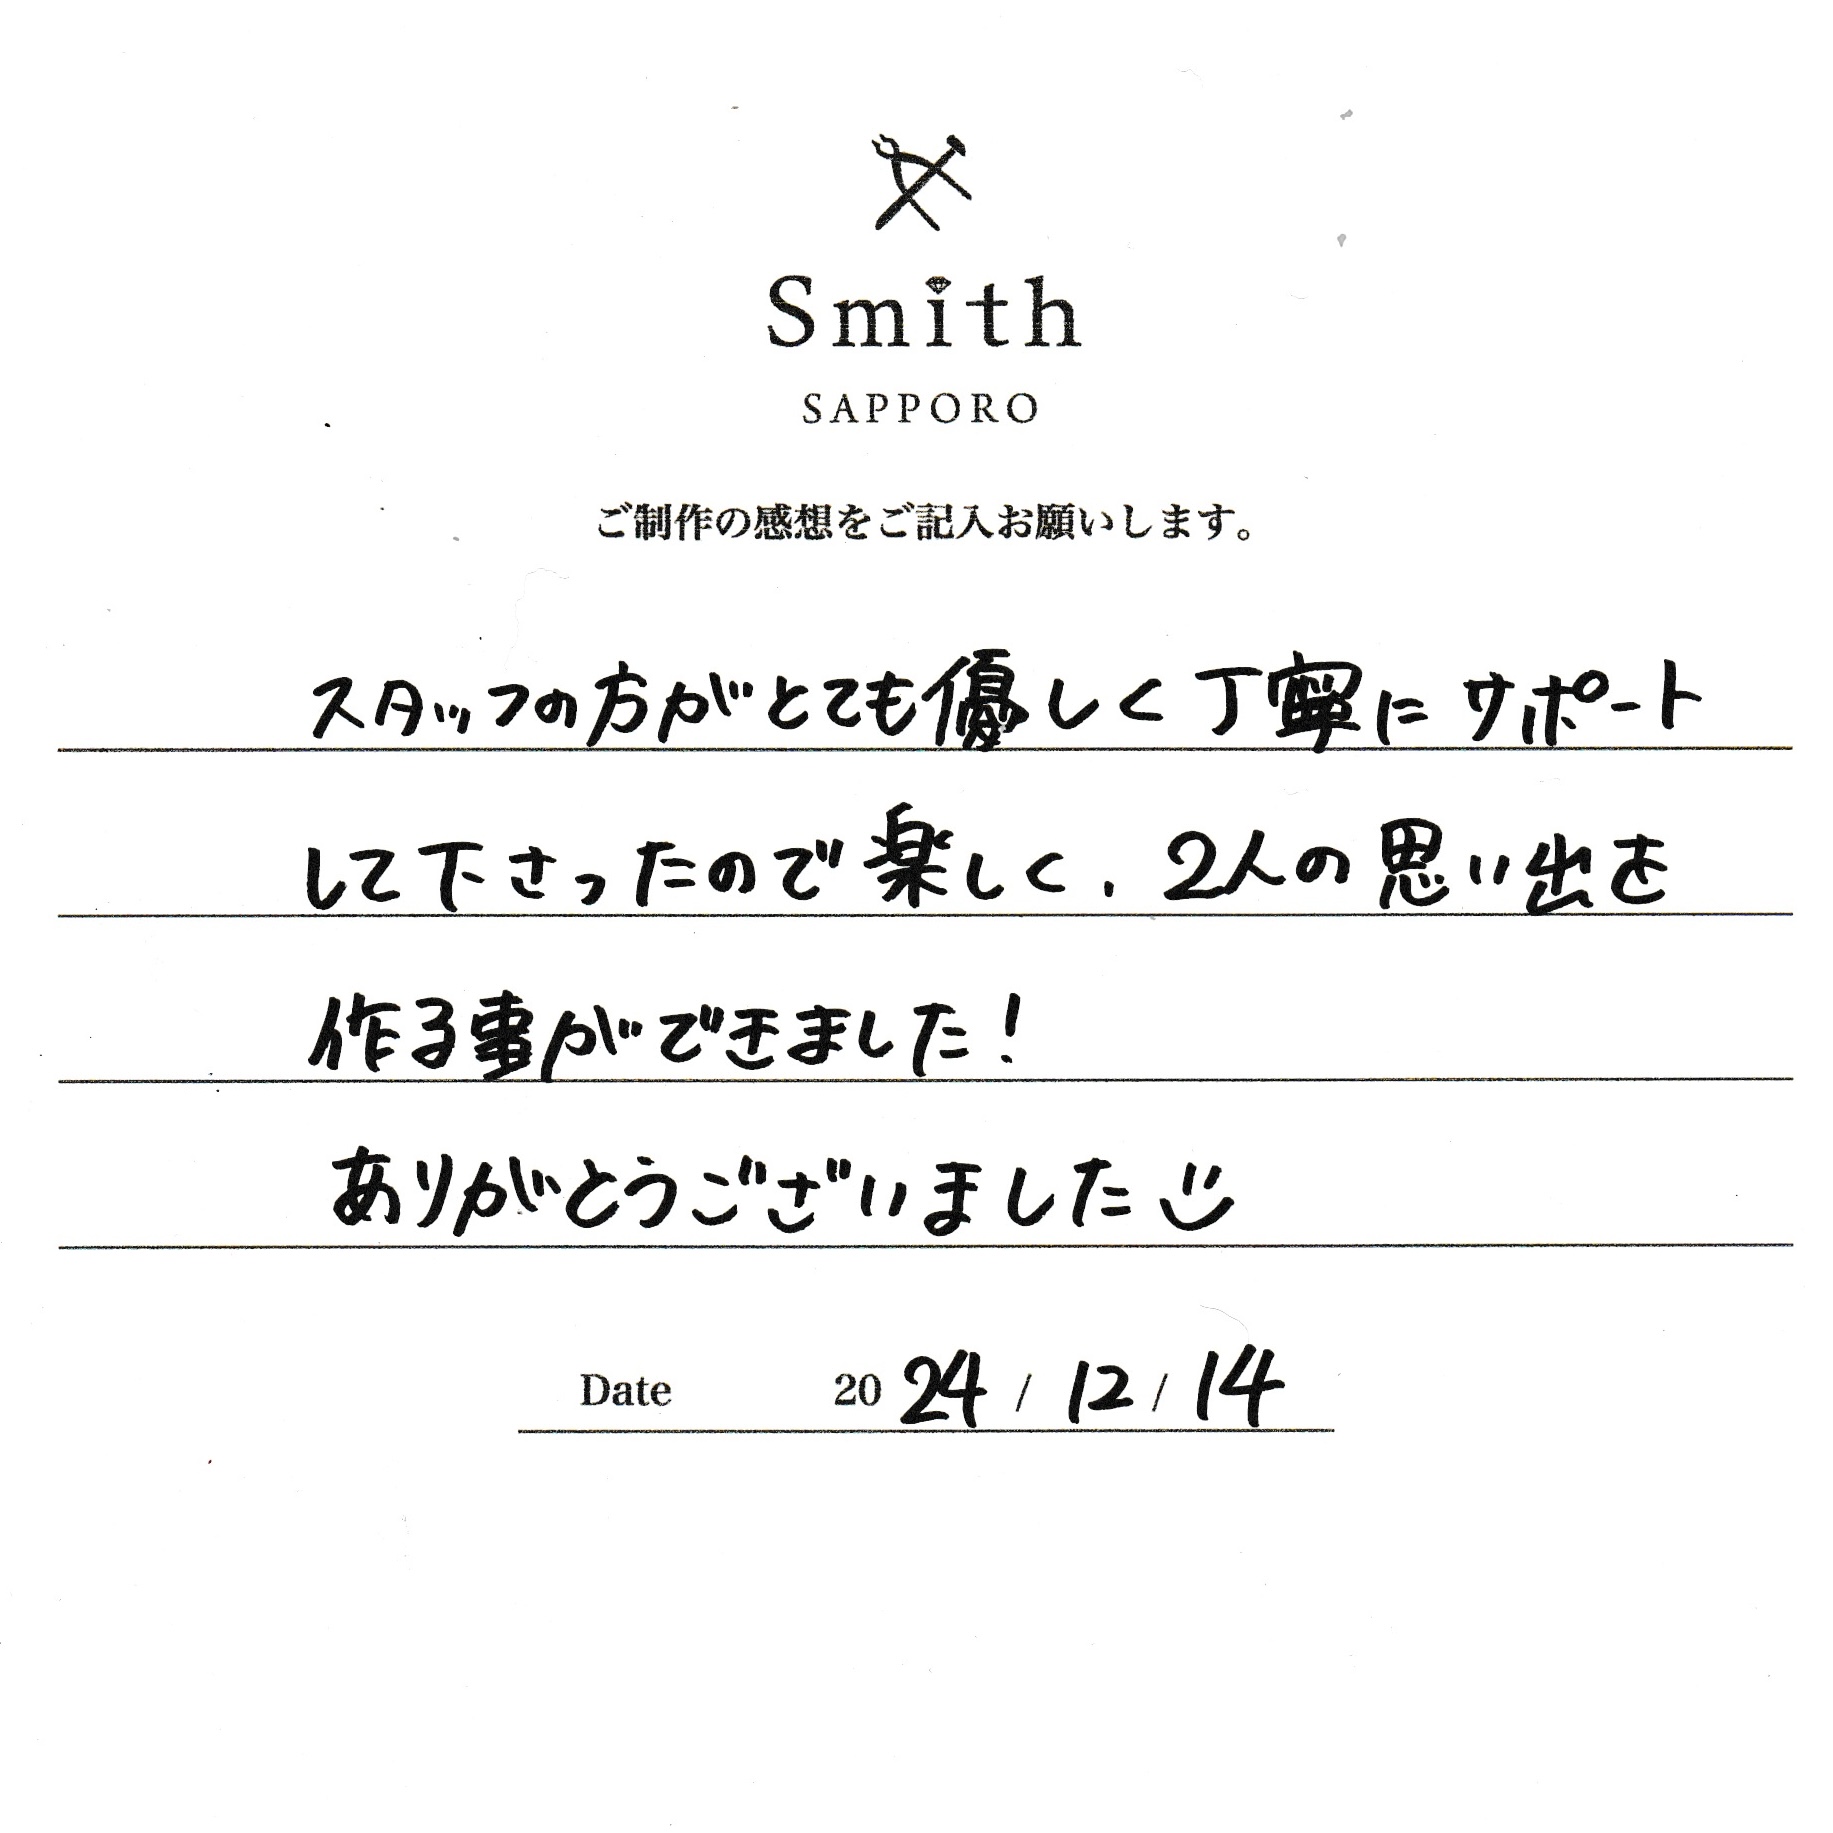 Smith
SAPPORO
ご制作の感想をご記入お願いします。
スタッフの方がとても優しく丁寧にサポート
して下さったので楽しく、2人の思い出を
作る事ができました!
ありがとうございました
Date 2024/12/14